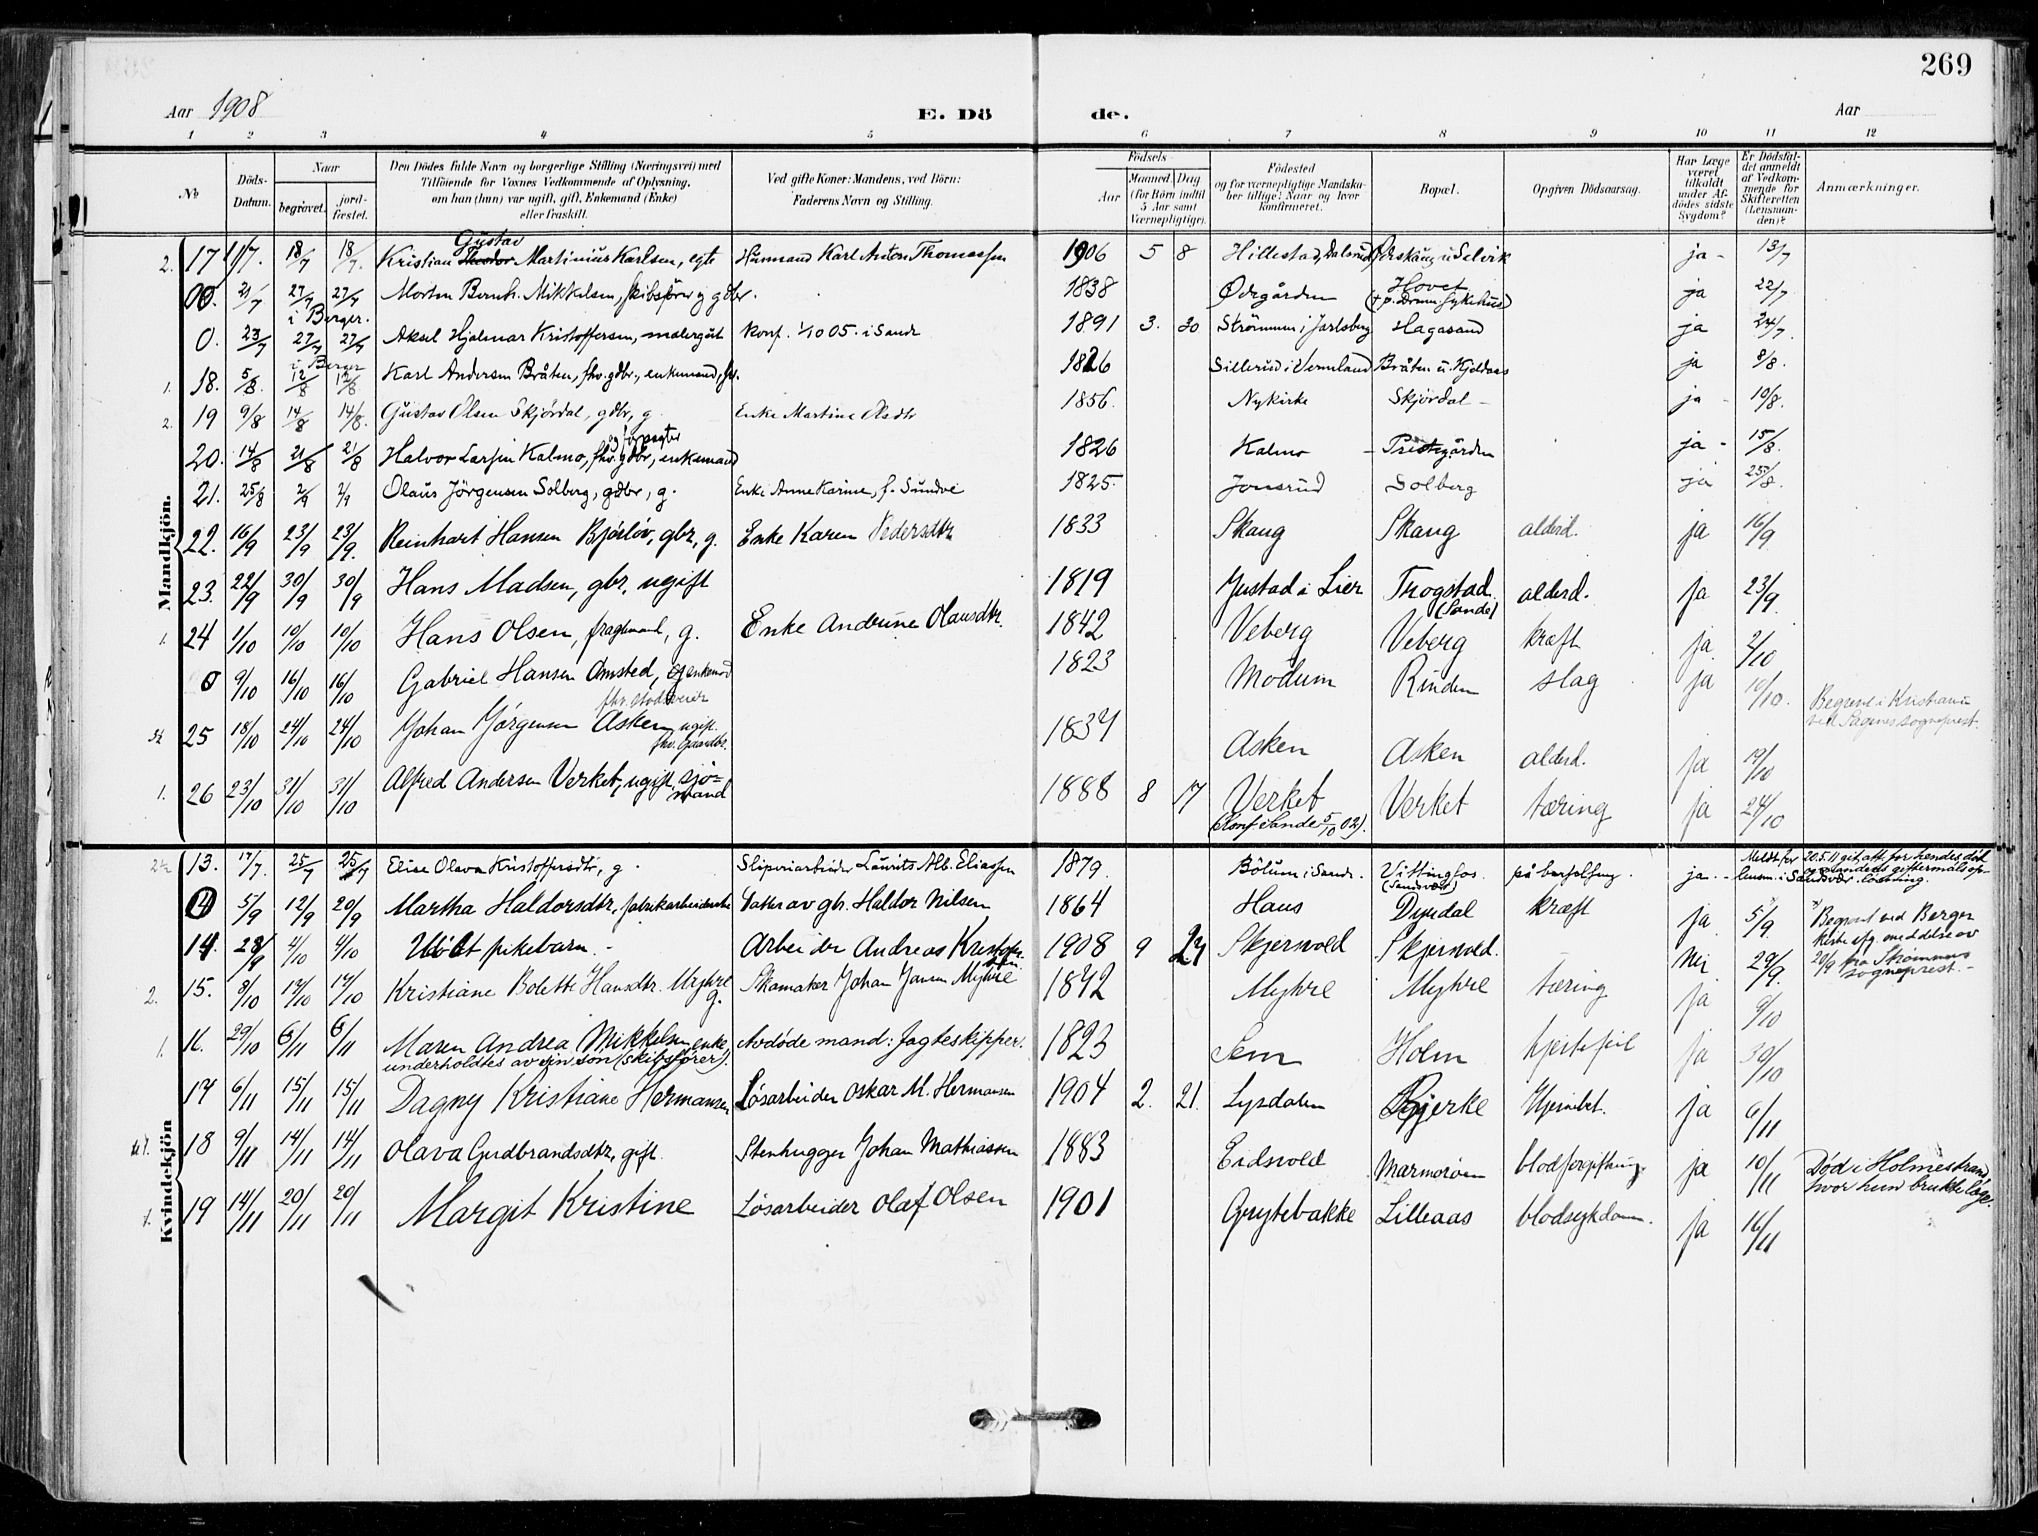 269
Aar 1908 E. Dö de. Aar
1 2 3 4 5 6 7 8 9 10 11 12
No
Döds-Datum.
Naar
begravet.
jord-fæstet.
Den Dödes fulde Navn og borgerlige Stilling (Næringsvei) med
Tilföiende for Voxnes Vedkommende af Oplysning,
om han (hun) var ugift, gift, Enkemand (Enke)
eller fraskilt.
Ved gifte Koner: Mandens, ved Börn:
Faderens Navn og Stilling.
Födsels
Aar
Maaned. Dag
(for Börn indtil
5 Aar samt
Værnepligtige).
Födested
og for værnepligtige Mandska-
ber tillige: Naar og hvor
konfirmeret.
Bopæl.
Opgiven Dödsaarsag.
Har Læge
været
tilkaldt
under Af-
dödes sidste
Sygdom?
Er Dödsfal-
det anmeldt
af Vedkom-
mende for
Skifteretten
(Lensman-
den)?
Anmærkninger.
Mandkjön.
Gustav
2. 17 11/7. 18/7 18/7. Kristian Martinius Karlsen, egte Husmand Karl Anton Thomassen 1906 5 8 Hillestad, Selvik ja - 13/7
00. 21/7 27/7 27/7 Morten Bernh. Mikkelsen, skibsfører og gdbr. 1838 Ødegården Hovet ja 22/7
i Berger. (+ p. Dram. sykehus)
0. 23/7 27/7 27/7 Aksel Hjalmar Kristoffersen, malergut Konf. 1/10 05. i Sande 1891 3. 30 Strömmen i Jarlsberg Hagasand ja 24/7.
i Berger
1. 18. 5/8. 12/8 12/8 Karl Andersen Bråten, fhv. gdbr., enkemand, 1826 Sillerud i Vermland Bråten u. Kjeldaas ja 8/8.
2. 19 9/8 14/8 14/8. Gustav Olsen Skjördal, gdbr, g. Enke Martine Olsdtr 1856. Nykirke Skjördal - ja - 10/8.
og forpagter
20. 14/8 21/8 21/8 Halvor Larsen Kalmo, fhv. gdbr, enkemand 1826 Kalmo Prestegården ja - 15/8.
21. 25/8 2/9 2/9 Olaus Jörgensen Solberg, gdbr, g. Enke Anne Karine, f. Sundve 1825. Jonsrud Solberg ja 25/8.
22. 16/9 23/9 23/9. Reinhart Hansen Bjørløv, gbr, g. Enke Karen Pedersdtr 1833 Skaug Skaug alderd. ja 16/9
23. 22/9 30/9 30/9 Hans Madsen, gbr, ugift 1819 Justad i Lier Trogstad alderd. ja 23/9.
(Sande)
1. 24 1/10 10/10 10/10 Hans Olsen, g. Enke Andrine Olausdtr. 1842 Veberg Veberg kræft ja 2/10
0 9/10 16/10 16/10 Gabriel Hansen Omsted, enkemd 1823 Modum Rinden slag ja 10/10. Begravet i Kristiania
fhv. ved Sagenes sogneprest.
25 18/10 24/10 24/10 Johan Jørgensen Asken ugift. 1834 Asken Asken alderd. ja 19/10
fhv. Gaardbr.
1. 26 23/10 31/10 31/10 Alfred Andersen Verket, ugift, sjø-
mand 1888 8 17 Verket Verket tæring ja 24/10
(Konf i Sande 5/10 02).
Kvindekjön
13. 17/7. 25/7 25/7 Elise Olava Kristoffersdtr, g. Sliperiarbeider Laurits Alb. Eliassen 1879. Bölum i Sande. Vittingfos på barselseng. ja - Meldt for 20.5.11 git att. for hendes död
(Sandsvær) lensm. i Sandsvær.
4 5/9 12/9 20/9 Martha Haldorsdtr, fabrikarbeiderske Datter av gbr. Haldor Nilsen 1864 Haus Dyrdal kræft ja 5/9 Begravet ved Berger
14. 28/9 4/10 4/10 Udöbt pikebarn - Arbeider Andreas Kristoffer-
sen 1908 9 27 Skjersvold Skjersvold. Nei 29/9. kirke efg. meddelse av
20/9 fra Strømmens
sogneprest. -
2. 15. 8/10 14/10 14/10 Kristiane Bolette Hansdtr. Myhre g. Skomaker Johan Jansen Myhre 1842 Myhre Myhre tæring ja 9/10
1. 16. 29/10 6/11 6/11 Maren Andrea Mikkelsen enke Avdøde mand: Jagteskipper. 1823 Sem Holm hjertefeil ja 30/10
underholdtes av sin søn (skibsfører).
17 6/11 15/11 15/11 Dagny Kristiane Hermansen Løsarbeider Oskar M. Hermansen 1904 2. 21. Lysdalen Bjerke Hjernebet. ja 6/11
18 9/11 14/11 14/11 Olava Gudbrandsdtr, gift. Stenhugger Johan Mathiassen 1883 Eidsvold Marmoröen blodforgiftning ja 10/11 Død i Holmestrand
hvor hun brukte læge.
1. 19 14/11 20/11 20/11 Margit Kristine Løsarbeider Olaf Olsen 1901 Grytebakke Lilleaas blodsykdom. ja 16/11